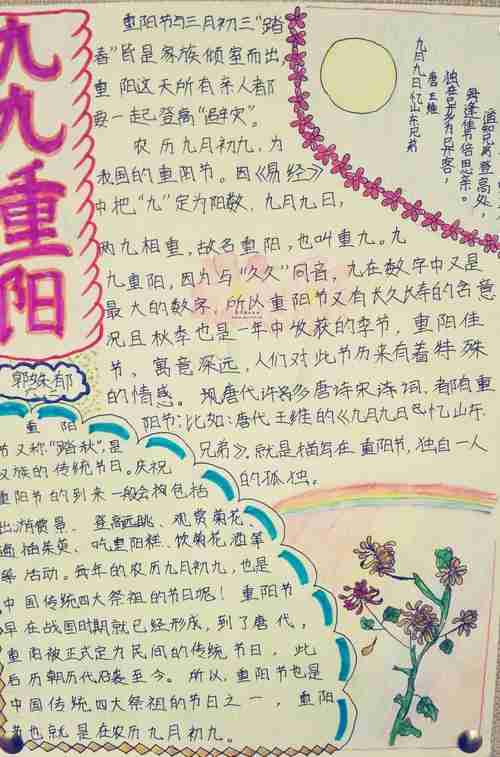 九九重阳
郭姝郁
重阳节与三月初三“踏
春”皆是家族倾室而出
重阳这天所有亲人都
要一起登高“避灾”。
农历九月初九，为
我国的重阳节。因《易经》
中把“九”定为阳数、九月九日，
两九相重，故名重阳，也叫重九。九
九重阳，因为与“久久”同音，九在数字中又是
最大的数字，所以重阳节又有长久长寿的含意
况且秋季也是一年中收获的季节，重阳佳
节、寓意深远，人们对此节历来有着特殊
的情感。现唐代许多唐诗宋诗词、都有重
阳节：比如：唐代王维的《九月九日忆山东
兄弟》。就是描写在重阳节，独自一人
的孤独。
九月九日忆山东兄弟
唐 王维
独在异乡为异客，
每逢佳节倍思亲。
遥知兄弟登高处，
重阳
节又称“踏秋”，是
汉族的传统节日。庆祝
重阳节的到来一般会包括
出游赏景、登高远眺、观赏菊花、
遍插茱萸、吃重阳糕、饮菊花酒等
等活动。每年的农历九月初九，也是
中国传统四大祭祖的节日呢！重阳节
早在战国时期就已经形成，到了唐代，
重阳被正式定为民间的传统节日，此
后历朝历代沿袭至今。所以，重阳节也是
中国传统四大祭祖的节日之一，重阳
节也就是在农历九月初九。